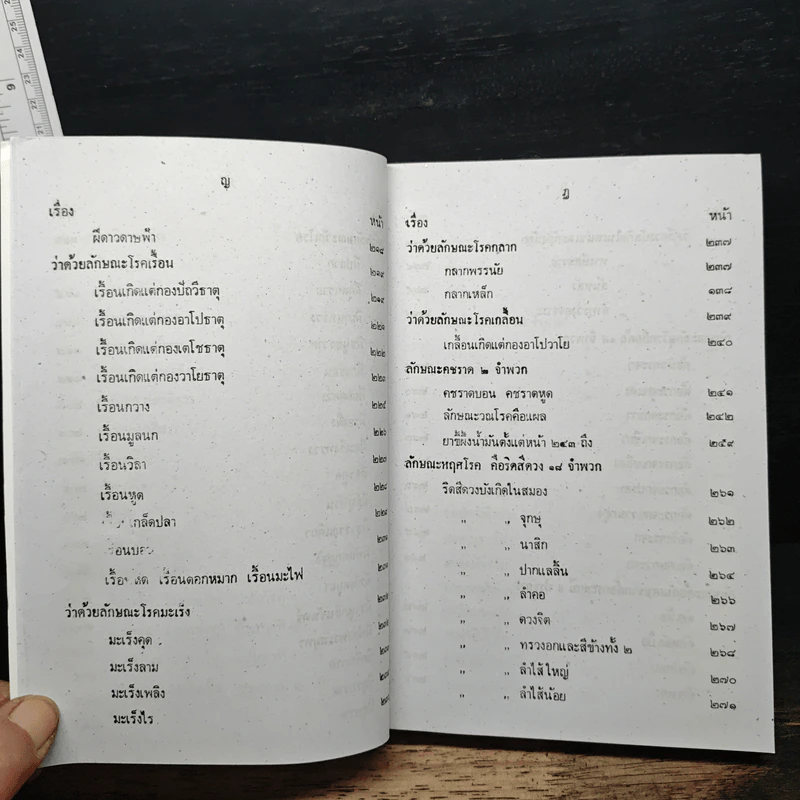 ญ
เรื่อง หน้า
ฝีดาวดาษฟ้า ๒๑๘
ว่าด้วยลักษณะโรคเรื้อน ๒๑๙
เรื้อนเกิดแต่กองปัถวีธาตุ ๒๑๙
เรื้อนเกิดแต่กองอาโปธาตุ ๒๒๑
เรื้อนเกิดแต่กองเตโชธาตุ ๒๒๒
เรื้อนเกิดแต่กองวาโยธาตุ ๒๒๓
เรื้อนกวาง ๒๒๕
เรื้อนมูลนก ๒๒๖
เรื้อนวิลา ๒๒๗
เรื้อนหูด ๒๒๘
เกล็ดปลา
เรื้อนดอกหมาก เรื้อนมะไฟ
ว่าด้วยลักษณะโรคมะเร็ง
มะเร็งคุด
มะเร็งลาม
มะเร็งเพลิง
มะเร็งไร
ฎ
เรื่อง หน้า
ว่าด้วยลักษณะโรคกลาก ๒๓๗
กลากพรรนัย ๒๓๗
กลากเหล็ก ๑๓๘
ว่าด้วยลักษณะโรคเกลื้อน ๒๓๙
เกลื้อนเกิดแต่กองอาโปวาโย ๒๔๐
ลักษณะคชราด ๒ จำพวก
คชราดบอน คชราดหูด ๒๔๑
ลักษณะวณโรคคือแผล ๒๔๒
ยาขี้ผึ้งน้ำมันตั้งแต่หน้า ๒๔๓ ถึง ๒๕๙
ลักษณะหฤศโรค คือริดสีดวง ๑๘ จำพวก
ริดสีดวงบังเกิดในสมอง ๒๖๑
,, ,, จุกษุ ๒๖๒
,, ,, นาสิก ๒๖๓
,, ,, ปากแลลิ้น ๒๖๔
,, ,, ลำคอ ๒๖๖
,, ,, ดวงจิต ๒๖๗
,, ,, ทรวงอกและสีข้างทั้ง ๒ ๒๖๘
,, ,, ลำไส้ใหญ่ ๒๗๐
,, ,, ลำไส้น้อย ๒๗๑